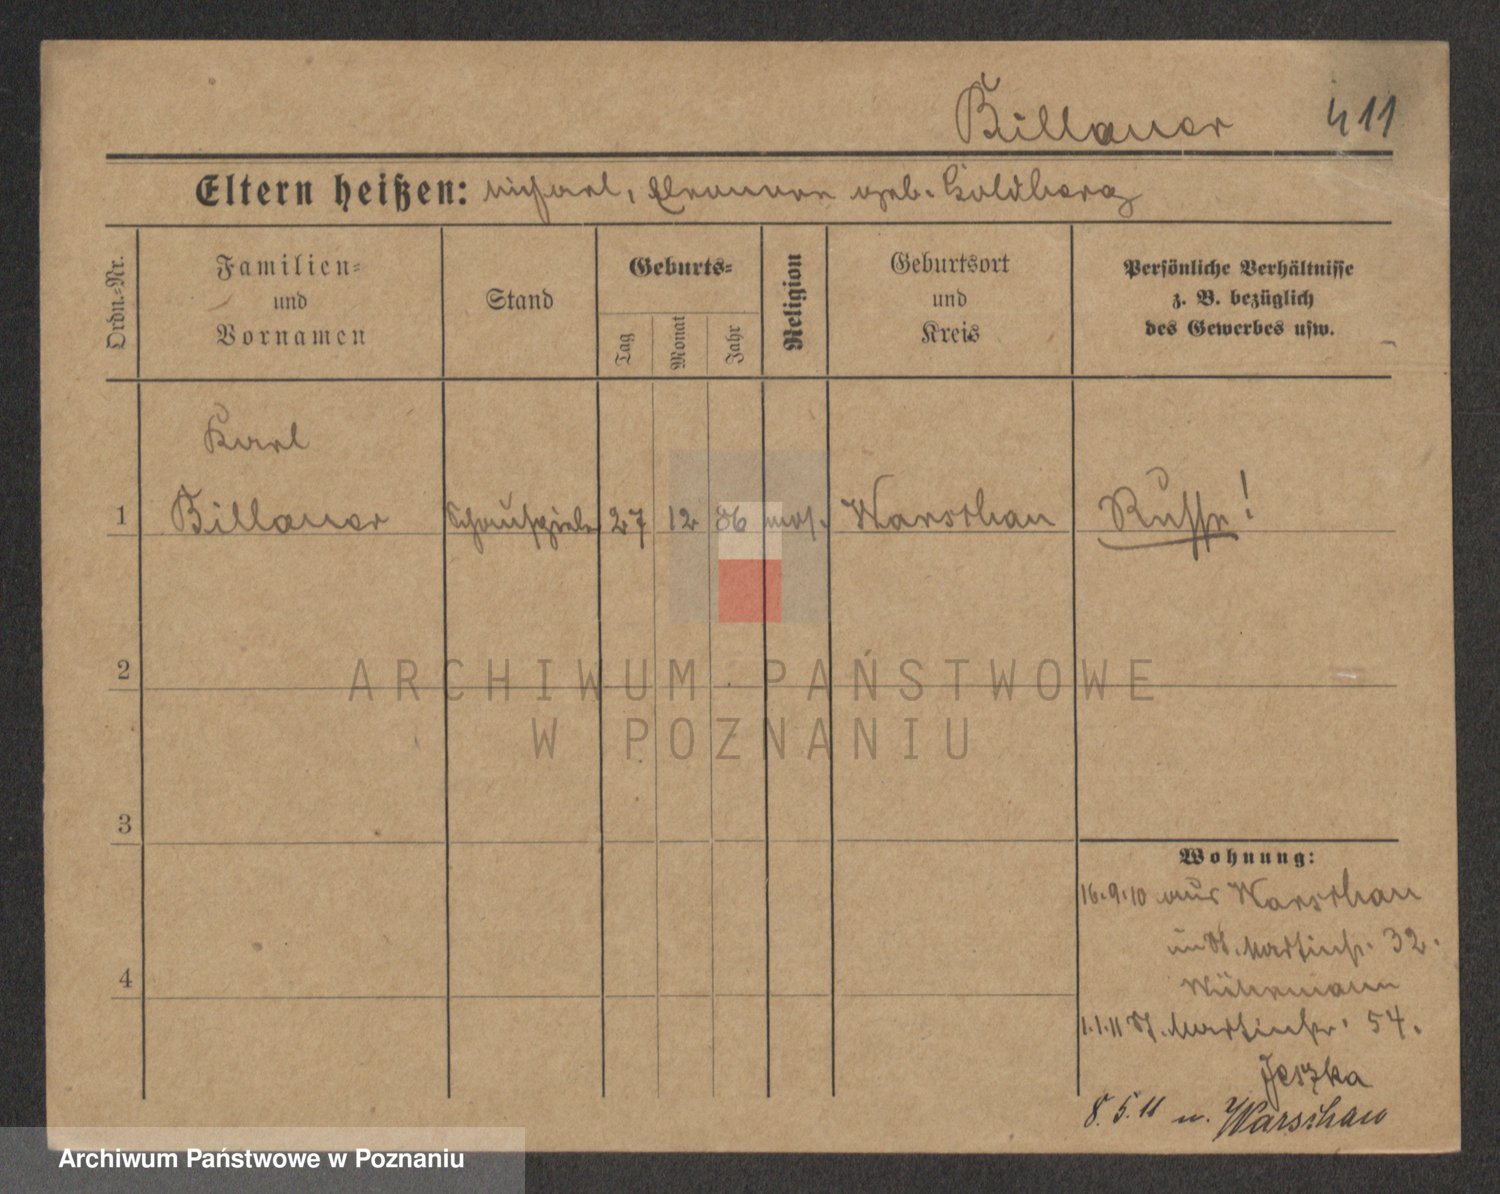 Billauer 411
Eltern heißen: Michael, Eleonore geb. Goldberg
Ordn.-Nr.
Familien=
und
Vornamen
Stand
Geburts=
Tag
Monat
Jahr
Religion
Geburtsort
und
Kreis
Persönliche Verhältnisse
z. B. bezüglich
des Gewerbes usw.
Karl
1 Billauer Schauspieler 27 12 86 mos. Warschau Russe!
2
3
4
Wohnung:
16.9.10 aus Warschau
in St. Martinstr. 32.
Wührmann
1.1.11 St. Martinstr. 54.
Jeszka
8.5.11 n. Warschau
ARCHIWUM PAŃSTWOWE
W POZNANIU
Archiwum Państwowe w Poznaniu